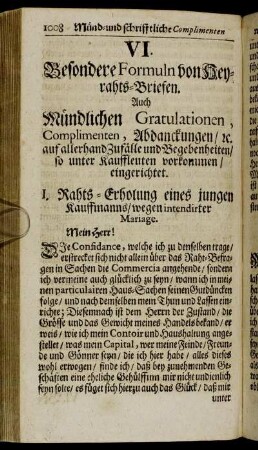 1008 Mündᵃund schrifftliche Complimenten
VI.
Besondere Formuln von Hey-
rahts-Briefen.
Auch
Mündlichen Gratulationen,
Complimenten, Abdanckungen / ꝛc.
auf allerhand Zufälle und Begebenheiten /
so unter Kauffleuten vorkommen /
eingerichtet.
I. Rahts-Erholung eines jungen
Kauffmanns / wegen intendirter
Mariage.
Mein Herr!
DIe Confidance, welche ich zu demselben trage /
erstrecket sich nicht allein über das Raht-Befra-
gen in Sachen die Commercia angehende / sondern
ich vermeine auch glücklich zu seyn / wann ich in mei-
nen particulairen Haus-Sachen seinem Gutdüncken
folge / und nach demselben mein Thun und Lassen ein-
richte; Diesemnach ist dem Herrn der Zustand / die
Grösse und das Gewicht meines Handels bekand / er
weis / wie ich mein Contoir und Haushaltung ange-
stellet / was mein Capital, wer meine Feinde / Freun-
de und Gönner seyn / die ich hier habe / alles dieses
wohl erwogen / finde ich / daß bey zunehmenden Ge-
schäften eine eheliche Gehülffinn mir nicht undienlich
seyn solte / es füget sich hierzu auch das Glück / daß mir
unter